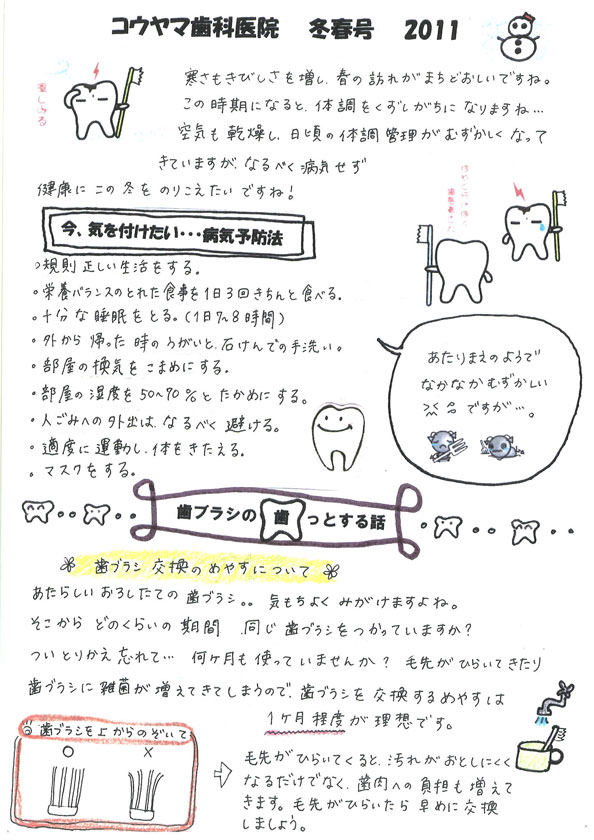 コウヤマ歯科医院 冬春号 2011
寒さもきびしさを増し、春の訪れがまちどおしいですね。
この時期になると、体調をくずしがちになりますね…
空気も乾燥し、日頃の体調管理がむずかしくなって
きていますが、なるべく病気せず
健康にこの冬をのりこえたいですね!
今、気を付けたい・・・病気予防法
。規則正しい生活をする。
。栄養バランスのとれた食事を1日3回きちんと食べる。
。十分な睡眠をとる。(1日7~8時間)
。外から帰った時のうがいと、石けんでの手洗い。
。部屋の換気をこまめにする。
。部屋の湿度を50~70%とたかめにする。
。人ごみへの外出は、なるべく避ける。
。適度に運動し、体をきたえる。
。マスクをする。
あたりまえのようで
なかなかむずかしい
ですが…。
歯ブラシの歯っとする話
歯ブラシ交換のめやすについて
あたらしいおろしたての歯ブラシ。。気もちよくみがけますよね。
そこからどのくらいの期間 同じ歯ブラシをつかっていますか?
ついとりかえ忘れて… 何ヶ月も使っていませんか? 毛先がひらいてきたり
歯ブラシに雑菌が増えてきてしまうので、歯ブラシを交換するめやすは
1ヶ月程度が理想です。
◎歯ブラシを上からのぞいて
○ ×
毛先がひらいてくると、汚れがおとしにくく
なるだけでなく、歯肉への負担も増えて
きます。毛先がひらいたら早めに交換
しましょう。